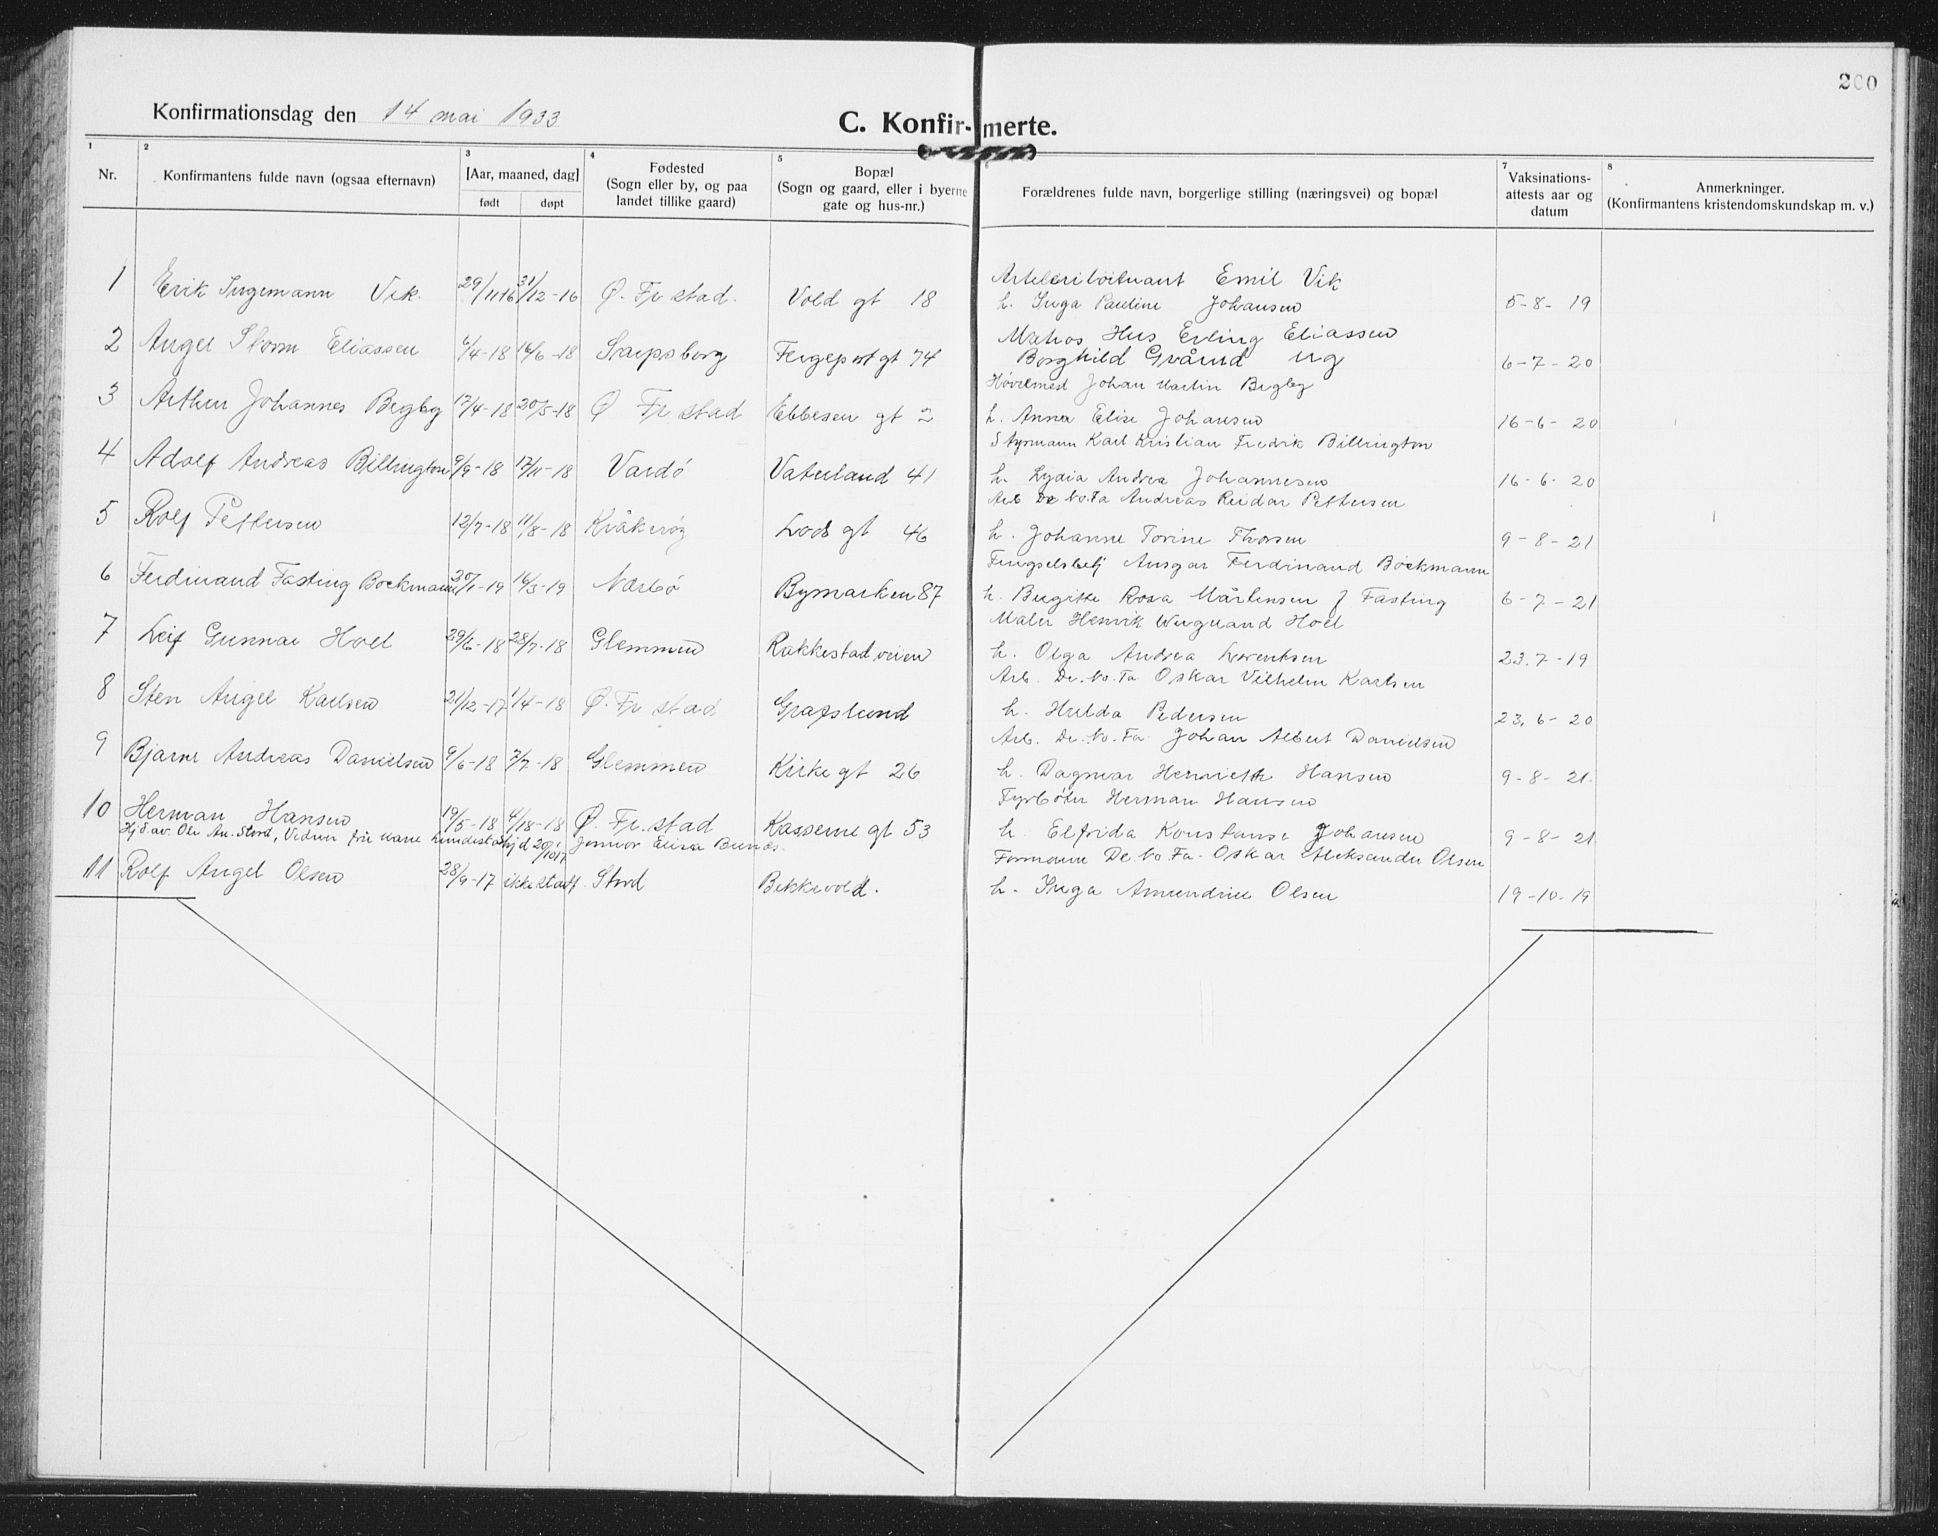 200
Konfirmationsdag den 14 mai 1933
C. Konfir- merte.
1 2 3 4 5 7 8
Nr.
Konfirmantens fulde navn (ogsaa efternavn)
[Aar, maaned, dag]
født døpt
Fødested
(Sogn eller by, og paa
landet tillike gaard)
Bopæl
(Sogn og gaard, eller i byerne
gate og hus-nr.)
Forældrenes fulde navn, borgerlige stilling (næringsvei) og bopæl
Vaksinations-
attests aar og
datum
Anmerkninger.
(Konfirmantens kristendomskundskap m. v.)
Emil Vik
1 Erik Ingemann Vik. 29/11-16 31/12-16 Ø. Fr stad. Vold gt 18 h. Inga Pauline Johansen 5-8-19
Matros Erling Eliassen
2 Angel Storm Eliassen /4-18 16/6-18 Sarpsborg Fergeport gt 74 Borghild ug 6-7-20
Johan Martin Begby
3 Arthur Johannes Begby 17/4-18 20/5-18 Ø Fr stad Ebbesen gt 2 h. Anna Elise Johansen 16-6-20
Styrmann Karl Kristian Fredrik Billington
4 Adolf Andreas Billington 9/9-18 17/11-18 Vardø Vaterland 41 h. Lydia Andrea Johannesen 16-6-20
Arb De No. Fa Andreas Reidar Pettersen
5 Rolf Pettersen 12/7-18 11/8-18 Kråkerøy Lods gt 46 h. Johanne Torine Thorsen 9-8-21
Fengselsbetj Ansgar Ferdinand Böckmann
6 Ferdinand Fasting Böckmann 30/1-19 16/3-19 Nærbø Bymarken 87 h. Birgitte Rosa Mårtensen f Fasting 6-7-21
Maler Henrik Wergeland Hoel
7 Leif Gunnar Hoel 29/6-18 28/7-18 Glemmen Rakkestadveien h. Olga Andrea Lorentsen 23.7-19
Arb. De. No. Fa Oskar Vilhelm Karlsen
8 Sten Angel Karlsen 21/12-17 1/4-18 Ø. Fr stad Grafslund h. Hulda Pedersen 23.6-20
Arb. De. No. Fa. Johan Albert Danielsen
9 Bjarne Andreas Danielsen 9/6-18 7/7-18 Glemmen Kirke gt 26 h. Dagmar Henriette Hansen 9-8-21.
Fyrbøter Herman Hansen
10 Herman Hansen 19/5-18 4/18-18 Ø. Fr. stad Kaserne gt 53 h. Elfrida Konstanse Johansen 9-8-21
Hjd av Ole An. Stord, Vidner hjd 20/10 17 Elisa
Formann De. No. Fa. Oskar Aleksander Olsen
11 Rolf Angel Olsen 28/9-17 ikke stadf. Stord Bekkevold. h. Inga Amundine Olsen 19-10-19